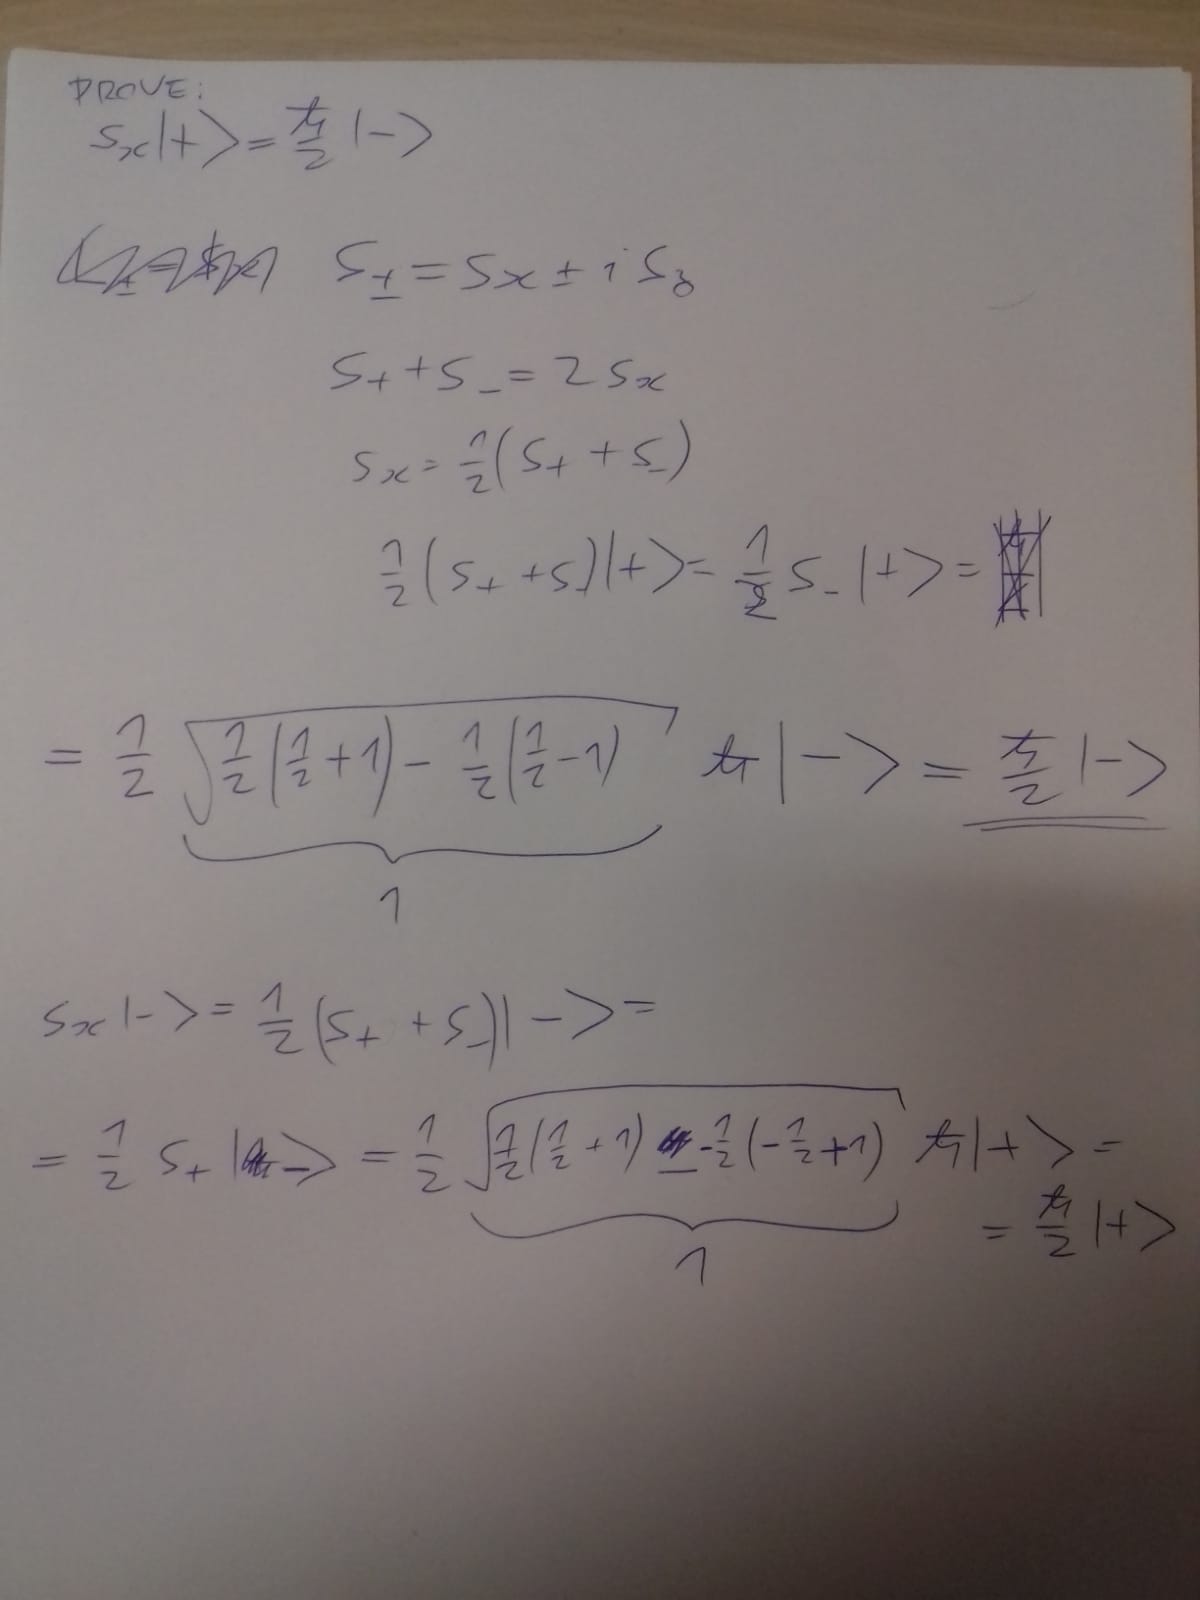 PROVE:
Sx|+> = ħ/2 |->
S± = Sx ± i Sy
S+ + S- = 2 Sx
Sx = 1/2 (S+ + S-)
1/2 (S+ + S-)|+> = 1/2 S- |+> =
= 1/2 √(1/2(1/2+1) - 1/2(1/2-1)) ħ |-> = ħ/2 |->
1
Sx |-> = 1/2 (S+ + S-)|-> =
= 1/2 S+ |-> = 1/2 √(1/2(1/2+1) - -1/2(-1/2+1)) ħ|+> =
= ħ/2 |+>
1